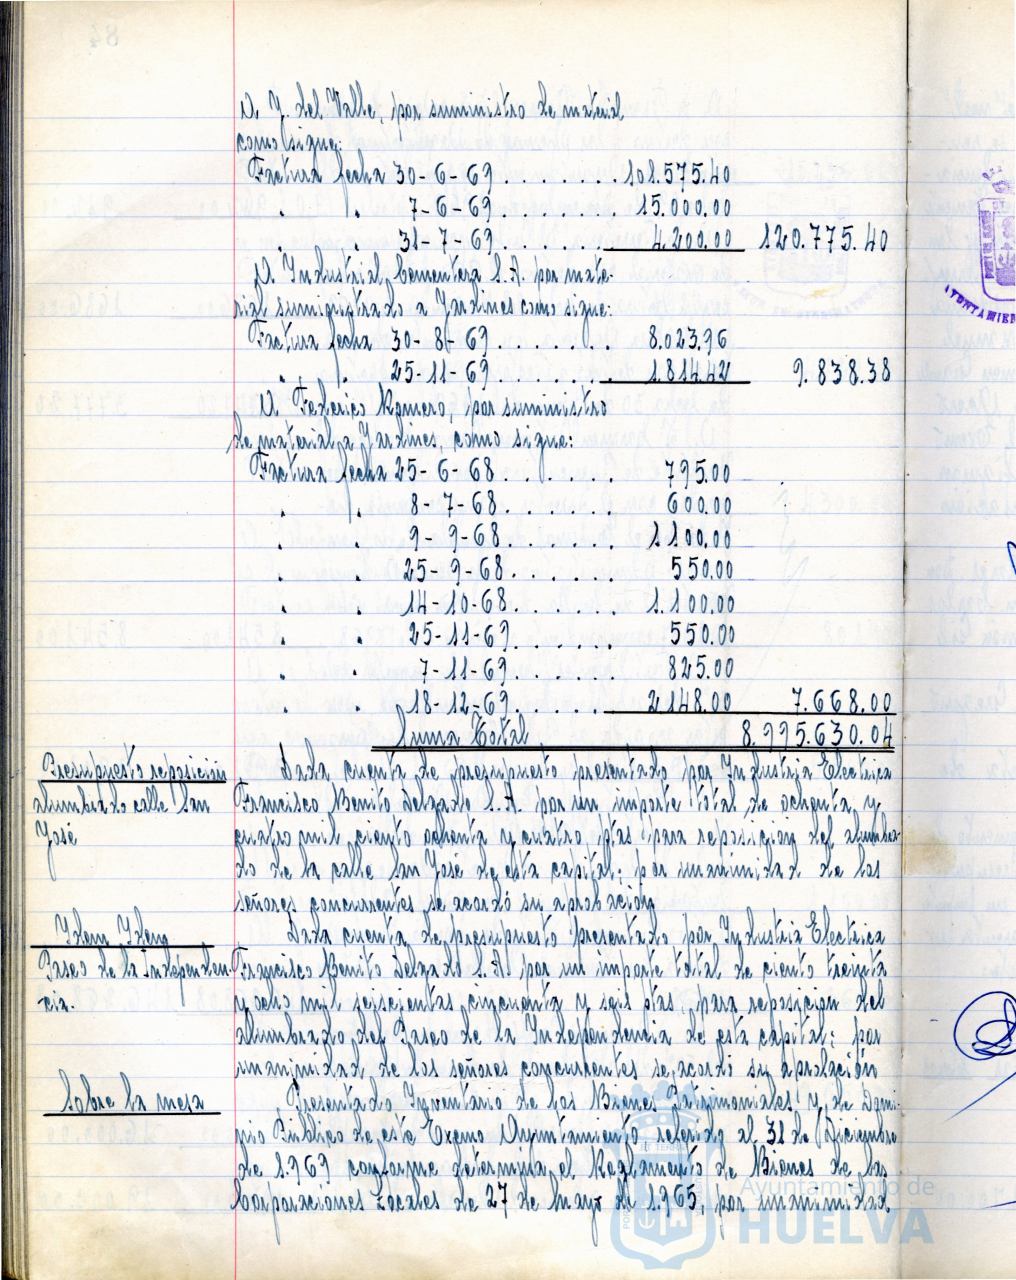 D. J. del Valle, por suministro de material
como sigue:
Factura fecha 30-6-69 . . . . . . . 101.575.40
" " 7-6-69 . . . . . . . 15.000.00
31-7-69 . . . . . . . 4.200.00 120.775.40
D. Industrial Cementera S.A. por mate-
rial suministrado a Jardines como sigue:
Factura fecha 30-8-69 . . . . . . . 8.023,96
" " 25-11-69 . . . . . . . 1.814.42 9.838.38
D. Federico Romero, por suministro
de material a Jardines, como sigue:
Factura fecha 25-6-68 . . . . . . . 795.00
" " 8-7-68 . . . . . . . 600.00
" " 9-9-68 . . . . . . . 1.100.00
" " 25-9-68 . . . . . . . 550.00
" " 14-10-68 . . . . . . . 1.100.00
" " 25-11-69 . . . . . . . 550.00
" " 7-11-69 . . . . . . . 825.00
" " 18-12-69 . . . . . . . 2148.00 7.668.00
Suma Total 8.995.630.04
Presupuesto reposición
alumbrado calle San
José
Dada cuenta de presupuesto presentado por Industria Electrica
Francisco Benito Delgado S.A. por un importe total de ochenta y
cuatro mil ciento ochenta y cuatro ptas para reposición del alumbra-
do de la calle San José de esta capital; por unanimidad de los
señores concurrentes se acordó su aprobación
Idem Idem
Paseo de la Independen-
cia.
Dada cuenta de presupuesto presentado por Industria Electrica
Francisco Benito Delgado S.A. por un importe total de ciento treinta
y ocho mil seiscientas cincuenta y seis ptas, para reposición del
alumbrado del Paseo de la Independencia de esta capital; por
unanimidad de los señores concurrentes se acordó su aprobación
Sobre la mesa
Presentado Inventario de los Bienes Patrimoniales y de Domi-
nio Público de este Excmo Ayuntamiento referido al 31 de Diciembre
de 1.969 conforme determina el Reglamento de Bienes de las
Corporaciones Locales de 27 de Mayo de 1.965, por unanimidad
Ayuntamiento de
HUELVA